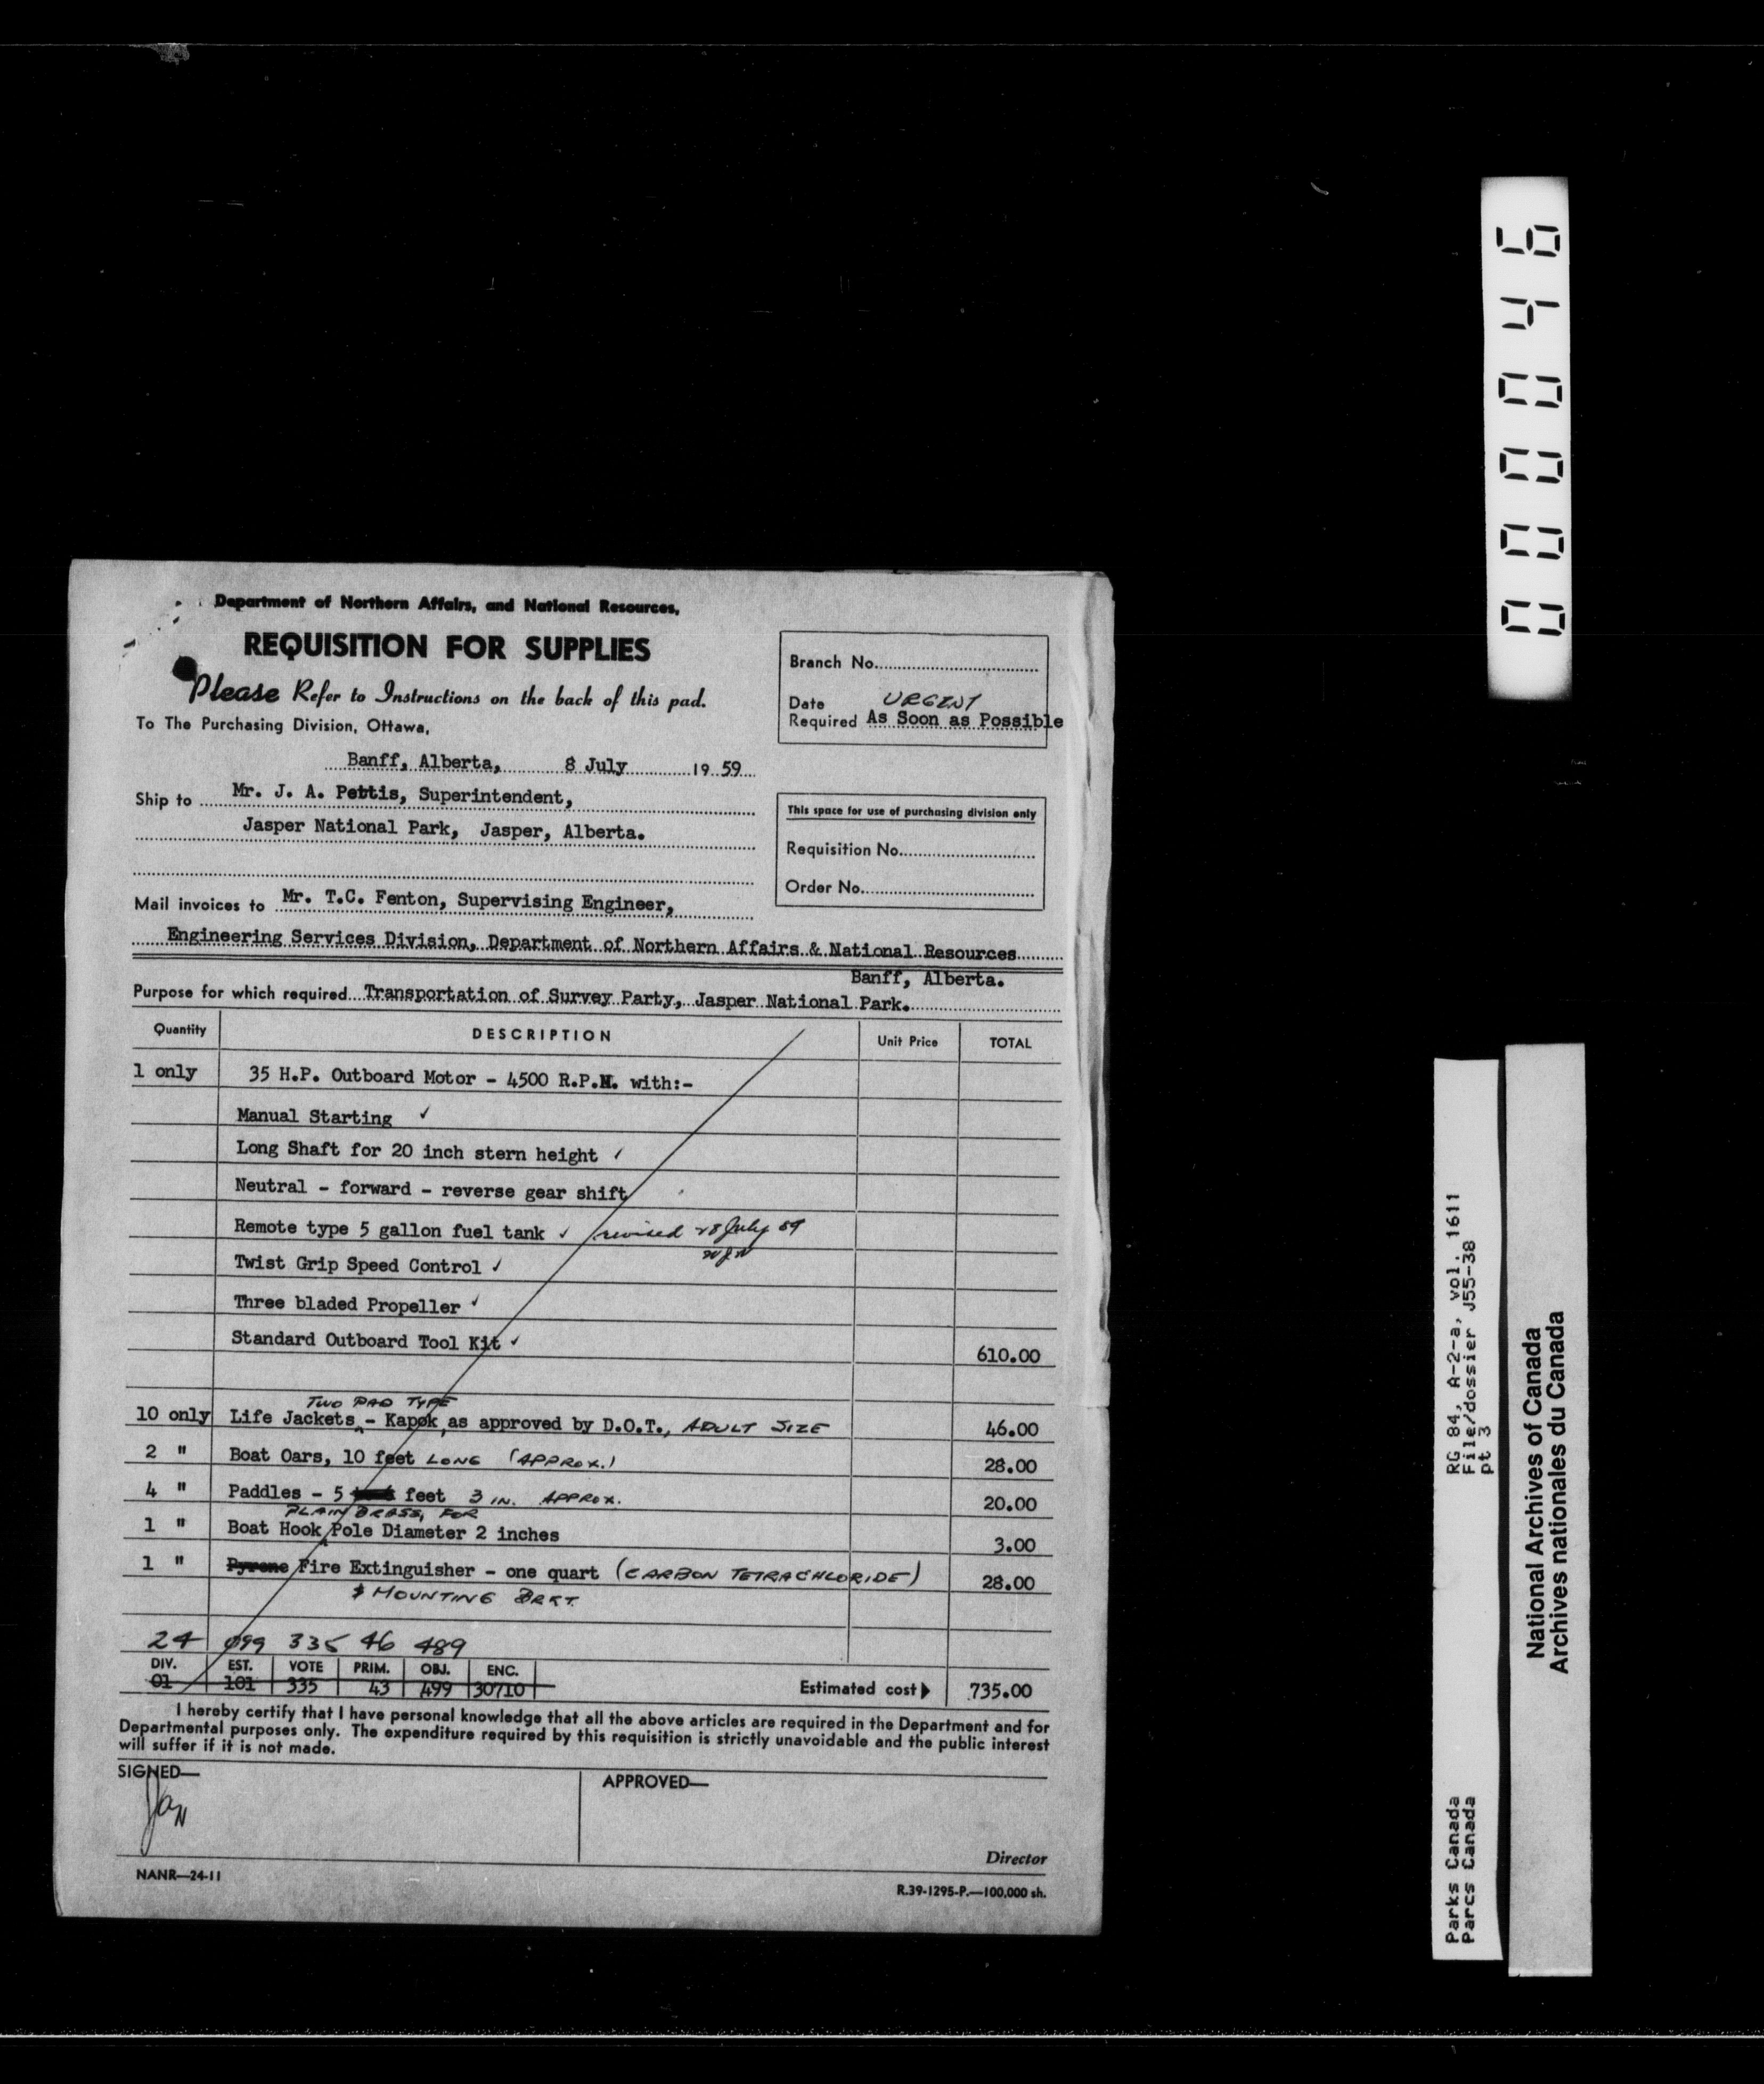 Department of Northern Affairs, and National Resources,
REQUISITION FOR SUPPLIES
Please Refer to Instructions on the back of this pad.
To The Purchasing Division, Ottawa,
Branch No.
Date URGENT
Required As Soon as Possible
Banff, Alberta, 8 July 19 59
Ship to Mr. J. A. Pettis, Superintendent,
Jasper National Park, Jasper, Alberta.
This space for use of purchasing division only
Requisition No.
Order No.
Mail invoices to Mr. T.C. Fenton, Supervising Engineer,
Engineering Services Division, Department of Northern Affairs & National Resources
Banff, Alberta.
Purpose for which required Transportation of Survey Party, Jasper National Park.
Quantity DESCRIPTION Unit Price TOTAL
1 only 35 H.P. Outboard Motor - 4500 R.P.M. with:-
Manual Starting ✓
Long Shaft for 20 inch stern height ✓
Neutral - forward - reverse gear shift
Remote type 5 gallon fuel tank ✓ revised 28 July 59
Twist Grip Speed Control ✓
Three bladed Propeller ✓
Standard Outboard Tool Kit ✓ 610.00
TWO PAD TYPE
10 only Life Jackets - Kapok, as approved by D.O.T., ADULT SIZE 46.00
2 " Boat Oars, 10 feet LONG (APPROX.) 28.00
4 " Paddles - 5 feet 3 IN. APPROX. 20.00
PLAIN BRASS, FOR
1 " Boat Hook Pole Diameter 2 inches 3.00
1 " Pyrene Fire Extinguisher - one quart (CARBON TETRACHLORIDE) 28.00
& MOUNTING BRKT.
24 099 335 46 489
DIV. EST. VOTE PRIM. OBJ. ENC.
01 101 335 43 499 30710 Estimated cost 735.00
I hereby certify that I have personal knowledge that all the above articles are required in the Department and for
Departmental purposes only. The expenditure required by this requisition is strictly unavoidable and the public interest
will suffer if it is not made.
SIGNED—
APPROVED—
Director
NANR—24-11
R.39-1295-P.—100,000 sh.
000046
RG 84, A-2-a, vol. 1611
File/dossier J55-38
pt 3
Parks Canada
Parcs Canada
National Archives of Canada
Archives nationales du Canada